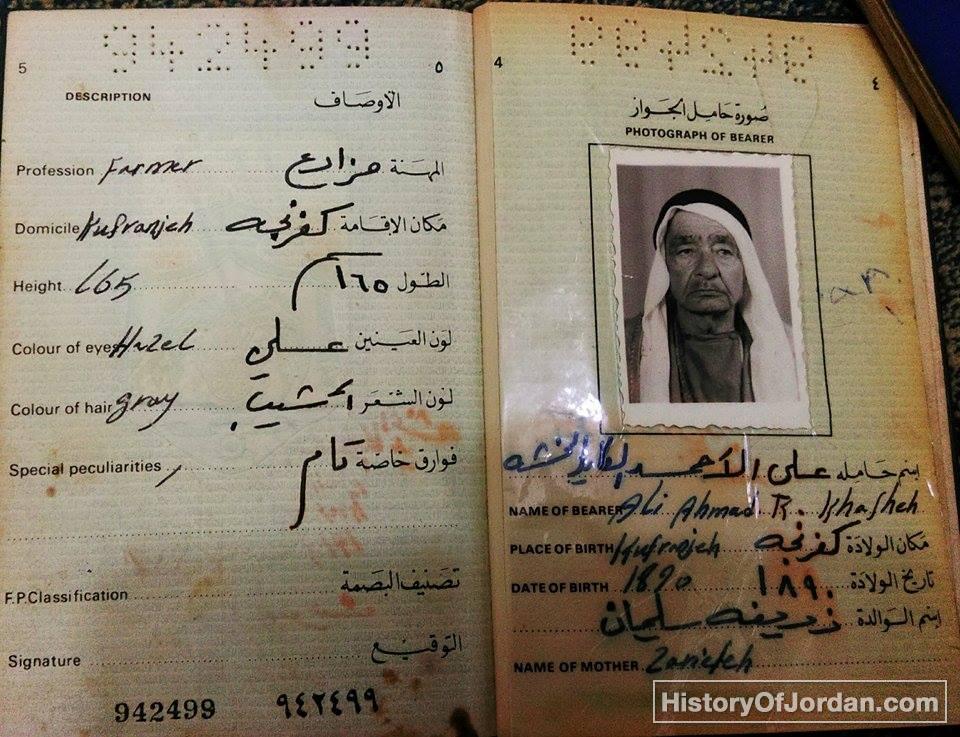 942499
5 ٥
DESCRIPTION الاوصاف
Profession Farmer مزارع المهنة
Domicile Kufranjeh كفرنجه مكان الاقامة
Height 165 ١٦٥ سم الطول
Colour of eyes Hazel عسلي لون العينين
Colour of hair gray لون الشعر
Special peculiarities / تام فوارق خاصة
F.P.Classification تصنيف البصمة
Signature التوقيع
942499 ٩٤٢٤٩٩
4 ٤
صورة حامل الجواز
PHOTOGRAPH OF BEARER
اسم حامله علي الاحمد
NAME OF BEARER Ali Ahmad R. Khasheh
PLACE OF BIRTH Kufranjeh كفرنجه مكان الولادة
DATE OF BIRTH 1890 ١٨٩٠ تاريخ الولادة
اسم الوالدة ظريفه سليمان
NAME OF MOTHER Zariefeh
HistoryOfJordan.com